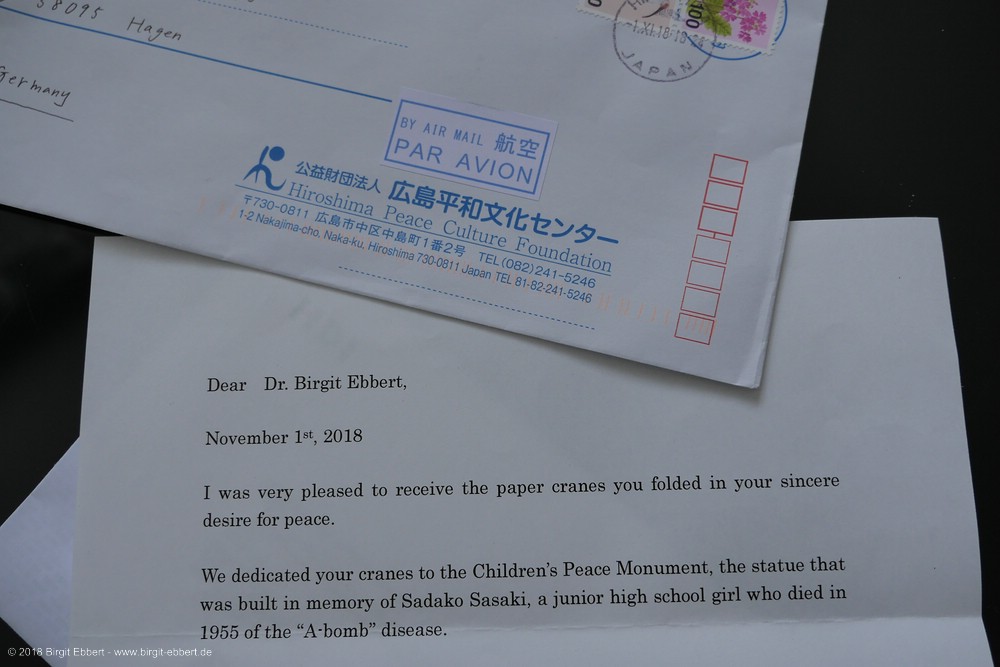 58095 Hagen
Germany
100
-1.XI.18
JAPAN
BY AIR MAIL 航空
PAR AVION
公益財団法人 広島平和文化センター
Hiroshima Peace Culture Foundation
〒730-0811 広島市中区中島町1番2号 TEL(082)241-5246
1-2 Nakajima-cho, Naka-ku, Hiroshima 730-0811 Japan TEL 81-82-241-5246
Dear Dr. Birgit Ebbert,
November 1st, 2018
I was very pleased to receive the paper cranes you folded in your sincere
desire for peace.
We dedicated your cranes to the Children's Peace Monument, the statue that
was built in memory of Sadako Sasaki, a junior high school girl who died in
1955 of the “A-bomb” disease.
© 2018 Birgit Ebbert - www.birgit-ebbert.de